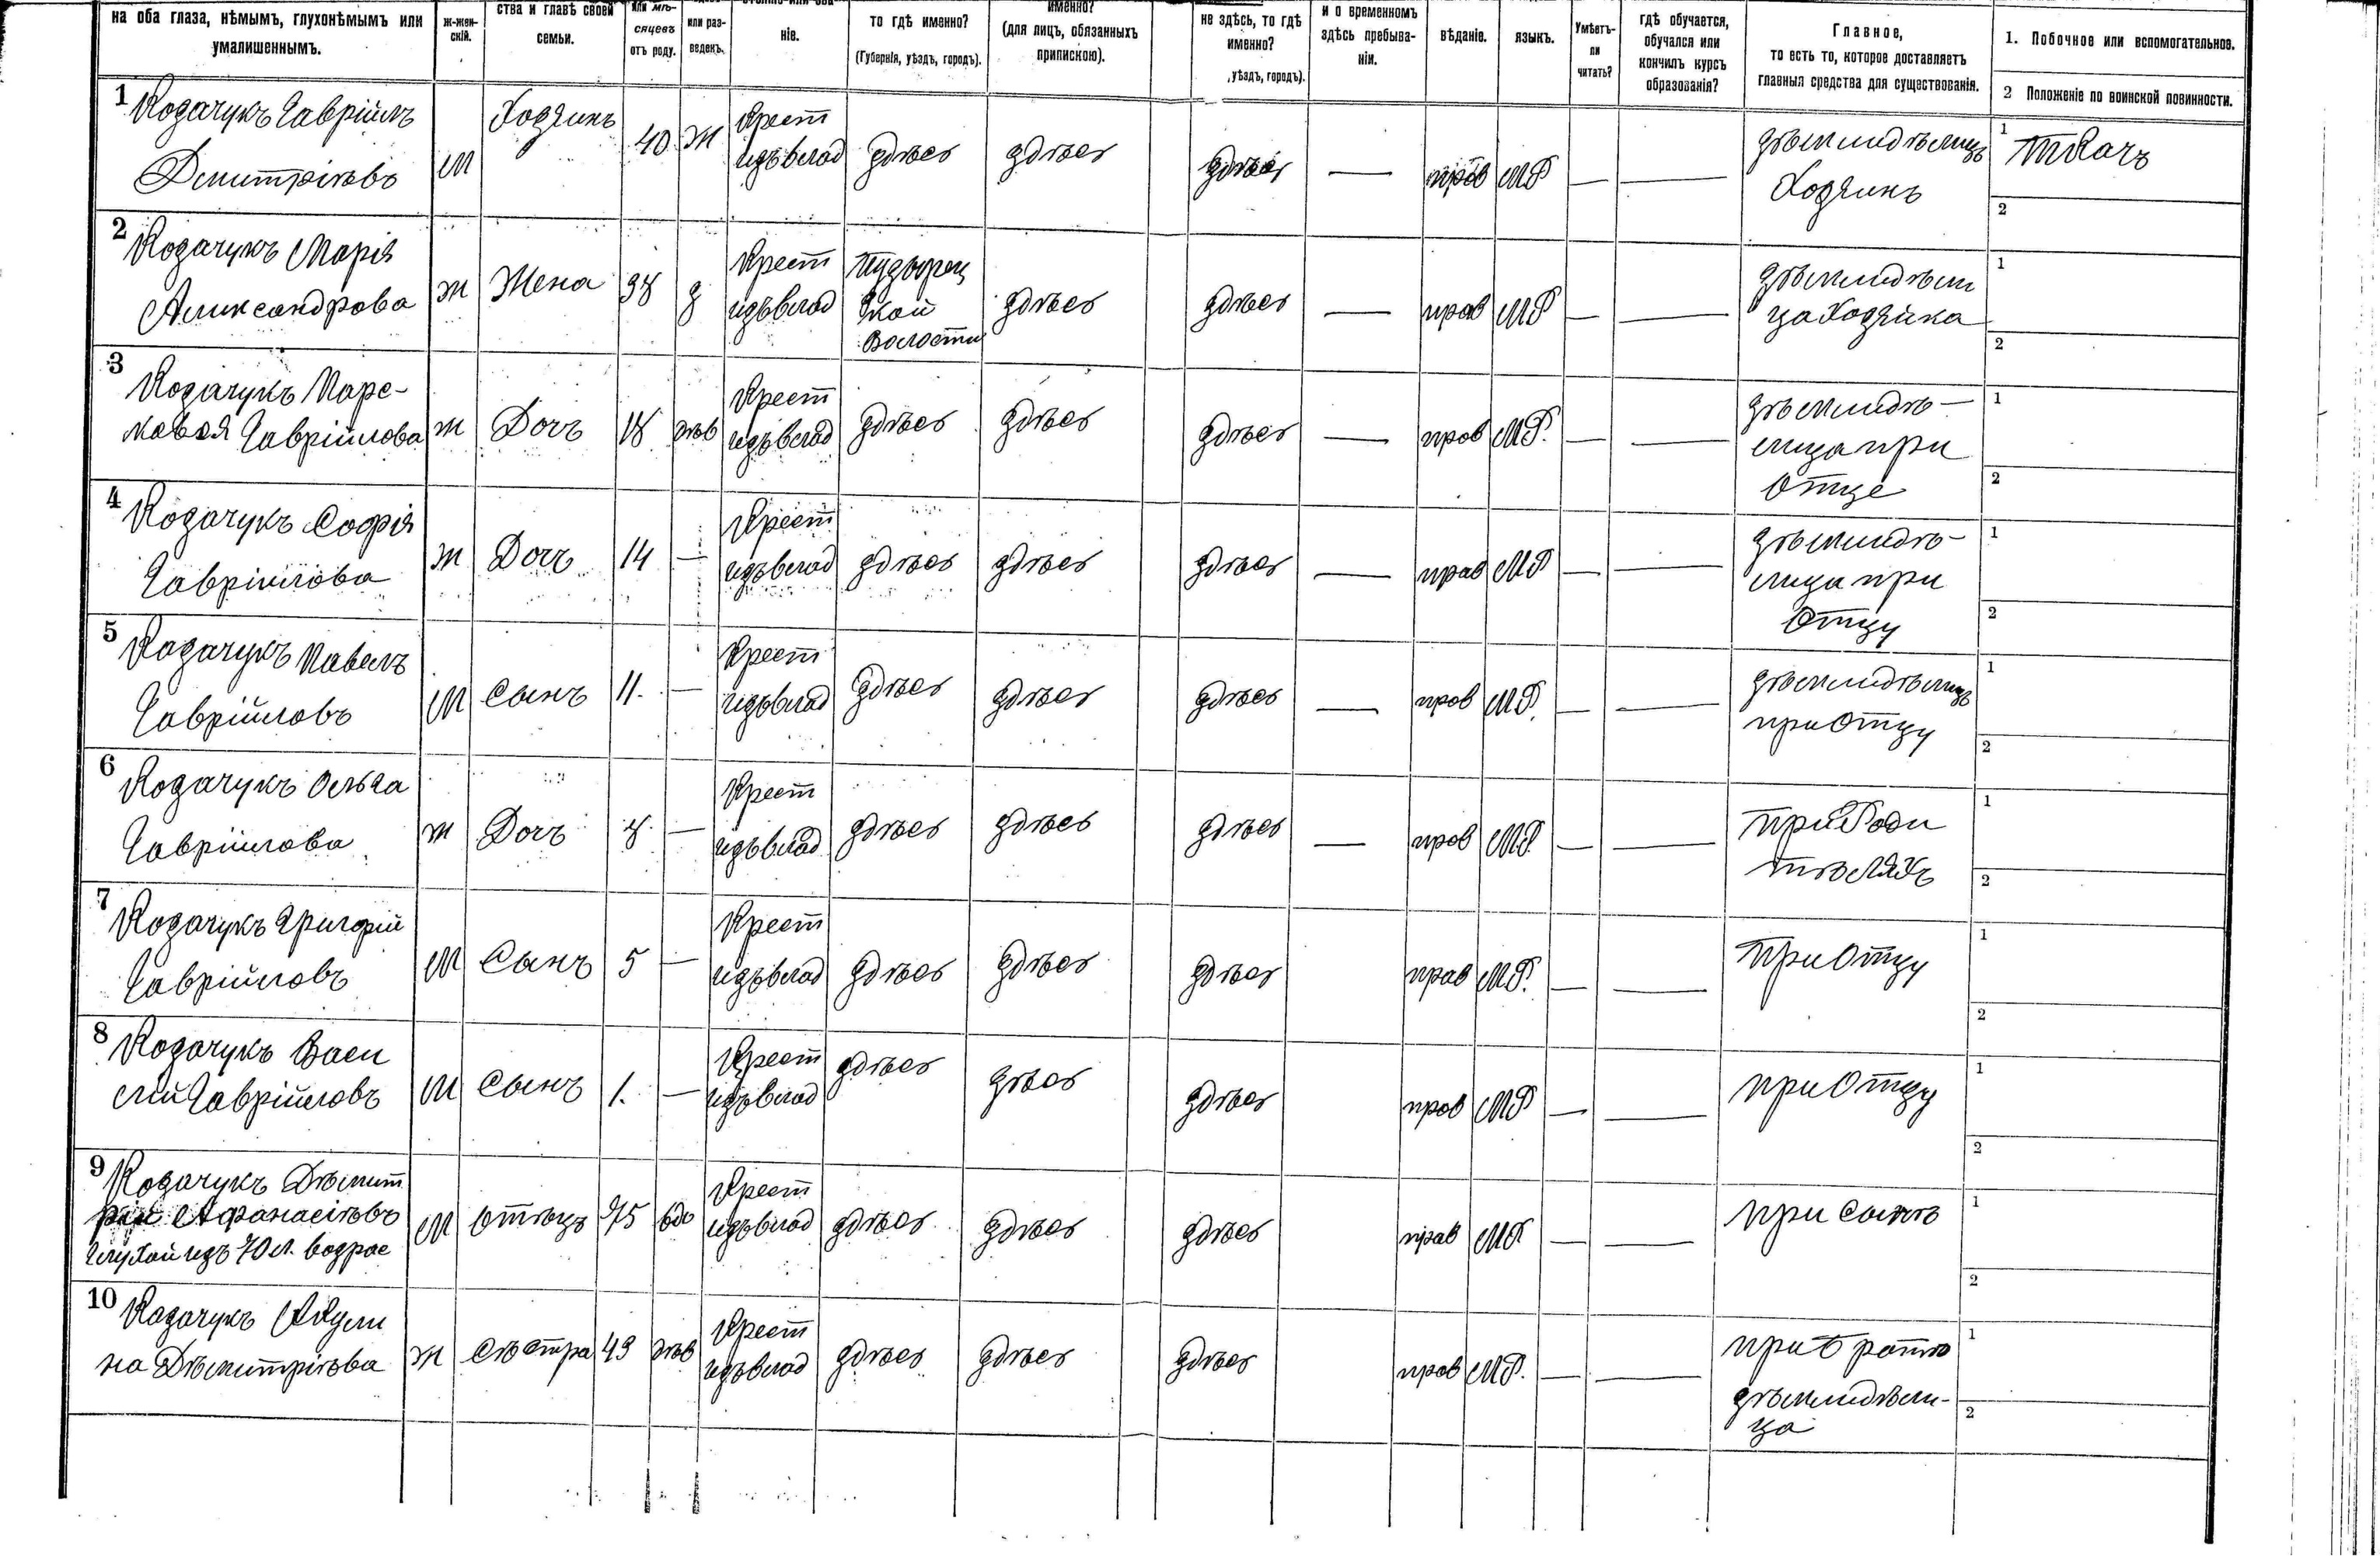 на оба глаза, нѣмымъ, глухонѣмымъ или
умалишеннымъ.
ж-жен-
скій.
ства и главѣ своей
семьи.
или мѣ-
сяцевъ
отъ роду.
или раз-
веденъ.
ніе.
то гдѣ именно?
(Губернія, уѣздъ, городъ).
именно?
(для лицъ, обязанныхъ
припискою).
не здѣсь, то гдѣ
именно?
, уѣздъ, городъ).
и о временномъ
здѣсь пребыва-
ніи.
вѣданіе.
языкъ.
Умѣетъ-
ли
читать?
гдѣ обучается,
обучался или
кончилъ курсъ
образованія?
Главное,
то есть то, которое доставляетъ
главныя средства для существованія.
1. Побочное или вспомогательное.
2 Положеніе по воинской повинности.
1 Козачукъ Гаврійлъ
Дмитріѣвъ
м
Хозяинъ
40
ж
Крест
изъвлад
здѣсь
здѣсь
здѣсь
—
прав
МР
—
—
зѣмлидѣлицъ
Хозяинъ
1 Ткачъ
2
2 Козачукъ Марія
Александрова
ж
Жена
38
з
Крест
изъвлад
ской
Волости
здѣсь
здѣсь
—
прав
МР
—
—
зѣмлидѣли
ца Хозяйка
1
2
3
Козачукъ Парас-
кавея Гаврійлова
ж
Дочъ
18
дѣв
Крест
изъвлад
здѣсь
здѣсь
здѣсь
—
прав
МР.
—
—
зѣмлидѣ-
лица при
Отце
1
2
4 Козачукъ Софія
Гаврійлова
ж
Дочъ
14
—
Крест
изъвлад
здѣсь
здѣсь
здѣсь
—
прав
МР
—
—
зѣмлидѣ-
лица при
Отцу
1
2
5 Козачукъ Павелъ
Гаврійловъ
м
Сынъ
11.
—
Крест
изъвлад
здѣсь
здѣсь
здѣсь
—
прав
МР.
—
—
зѣмлидѣлицъ
при Отцу
1
2
6 Козачукъ Ольга
Гаврійлова
ж
Дочъ
8.
—
Крест
изъвлад
здѣсь
здѣсь
здѣсь
—
прав
МР.
—
—
при Роди
тѣляхъ
1
2
7 Козачукъ Григорій
Гаврійловъ
м
Сынъ
5
—
Крест
изъвлад
здѣсь
здѣсь
здѣсь
прав
МР.
—
—
при Отцу
1
2
8 Козачукъ Васи
лій Гаврійловъ
м
Сынъ
1.
—
Крест
изъвлад
здѣсь
зѣсь
здѣсь
прав
МР
—
—
при Отцу
1
2
9 Козачукъ Дѣмит
рій Афанасіѣвъ
глухой изъ 70 л. возрас
м
отѣцъ
75
вдо
Крест
изъвлад
здѣсь
здѣсь
здѣсь
прав
МР
—
—
при сынѣ
1
2
10 Козачукъ Акули
на Дѣмитріѣва
ж
Сѣстра
43
дѣв
Крест
изъвлад
здѣсь
здѣсь
здѣсь
прав
МР.
—
—
при братѣ
зѣмлидѣли-
ца
1
2